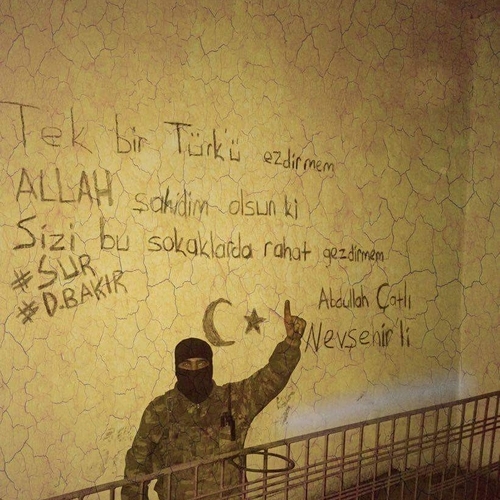 Tek bir Türk'ü ezdirmem
ALLAH şahidim olsun ki
Sizi bu sokaklarda rahat gezdirmem
#SUR
#D.BAKIR
Abdullah Çatlı
Nevşehir'li